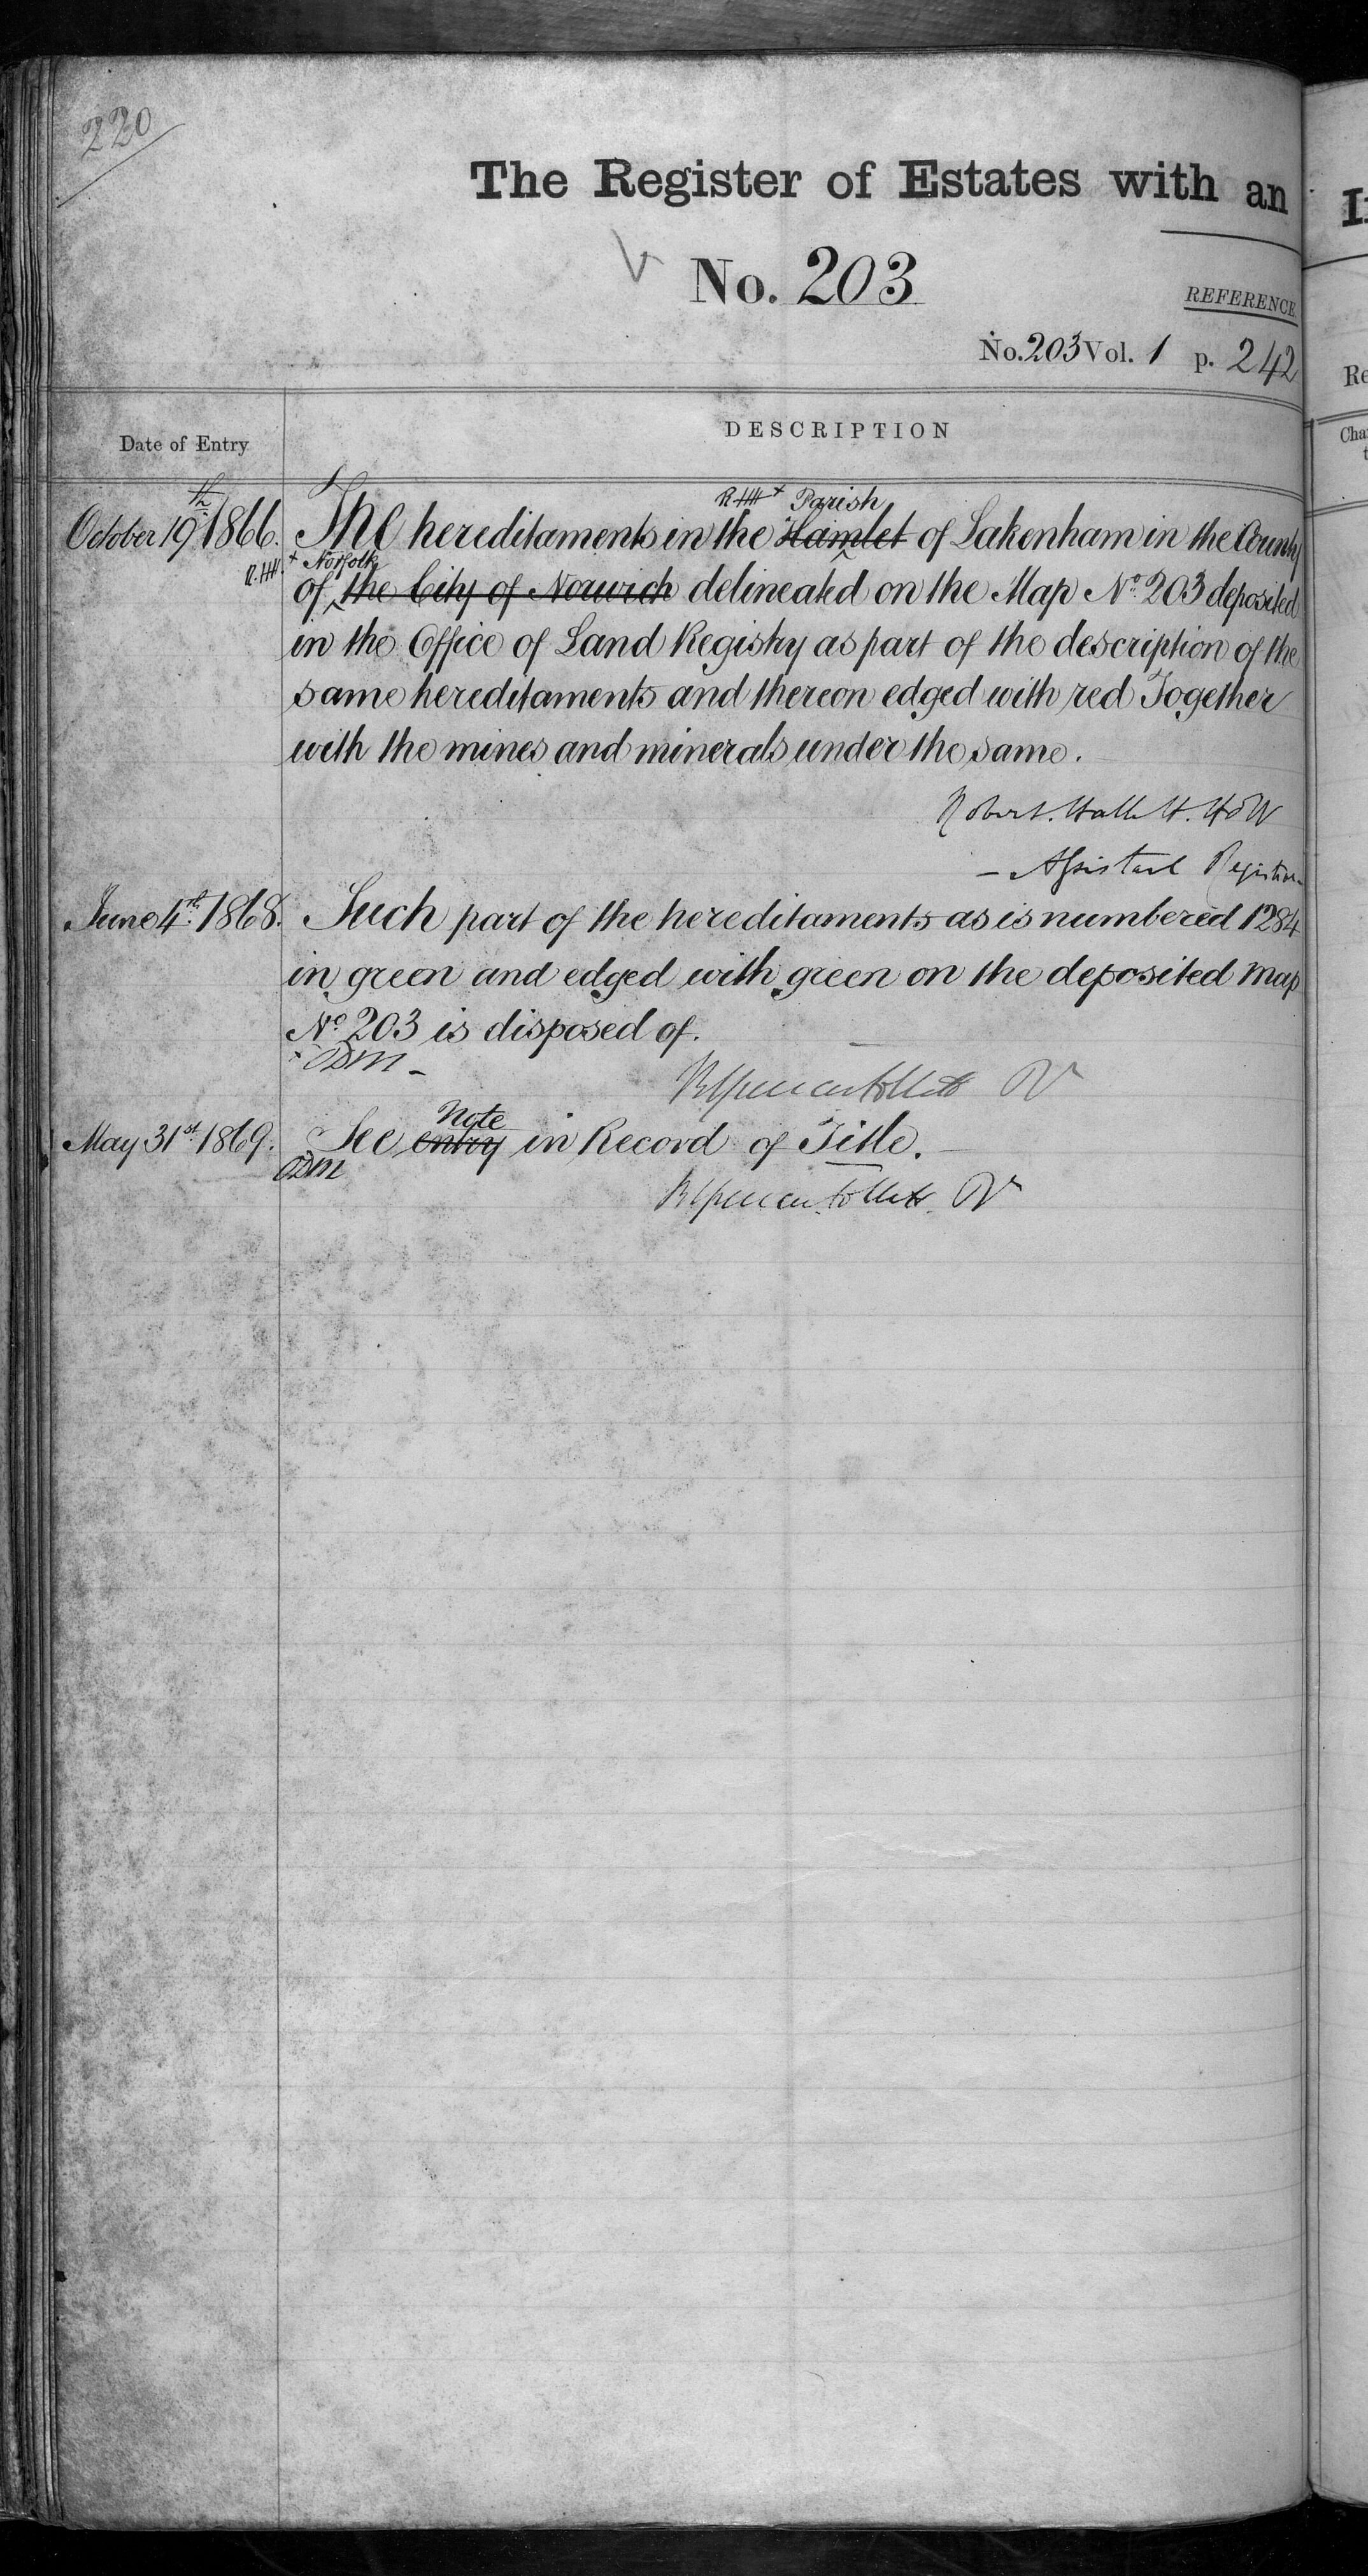 220
The Register of Estates with an
No. 203
REFERENCE
No. 203 Vol. 1 p. 242
Date of Entry
DESCRIPTION
R.HH + Parish
October 19th 1866. The hereditaments in the Hamlet of Lakenham in the County
R.HH. + Norfolk
of the City of Norwich delineated on the Map No. 203 deposited
in the Office of Land Registry as part of the description of the
same hereditaments and thereon edged with red Together
with the mines and minerals under the same.
Robert Hallett Holt
Assistant Registrar
June 4th 1868. Such part of the hereditaments as is numbered 1284
in green and edged with green on the deposited map
No. 203 is disposed of.
Note
May 31st 1869. See entry in Record of Title.
Re
Cha